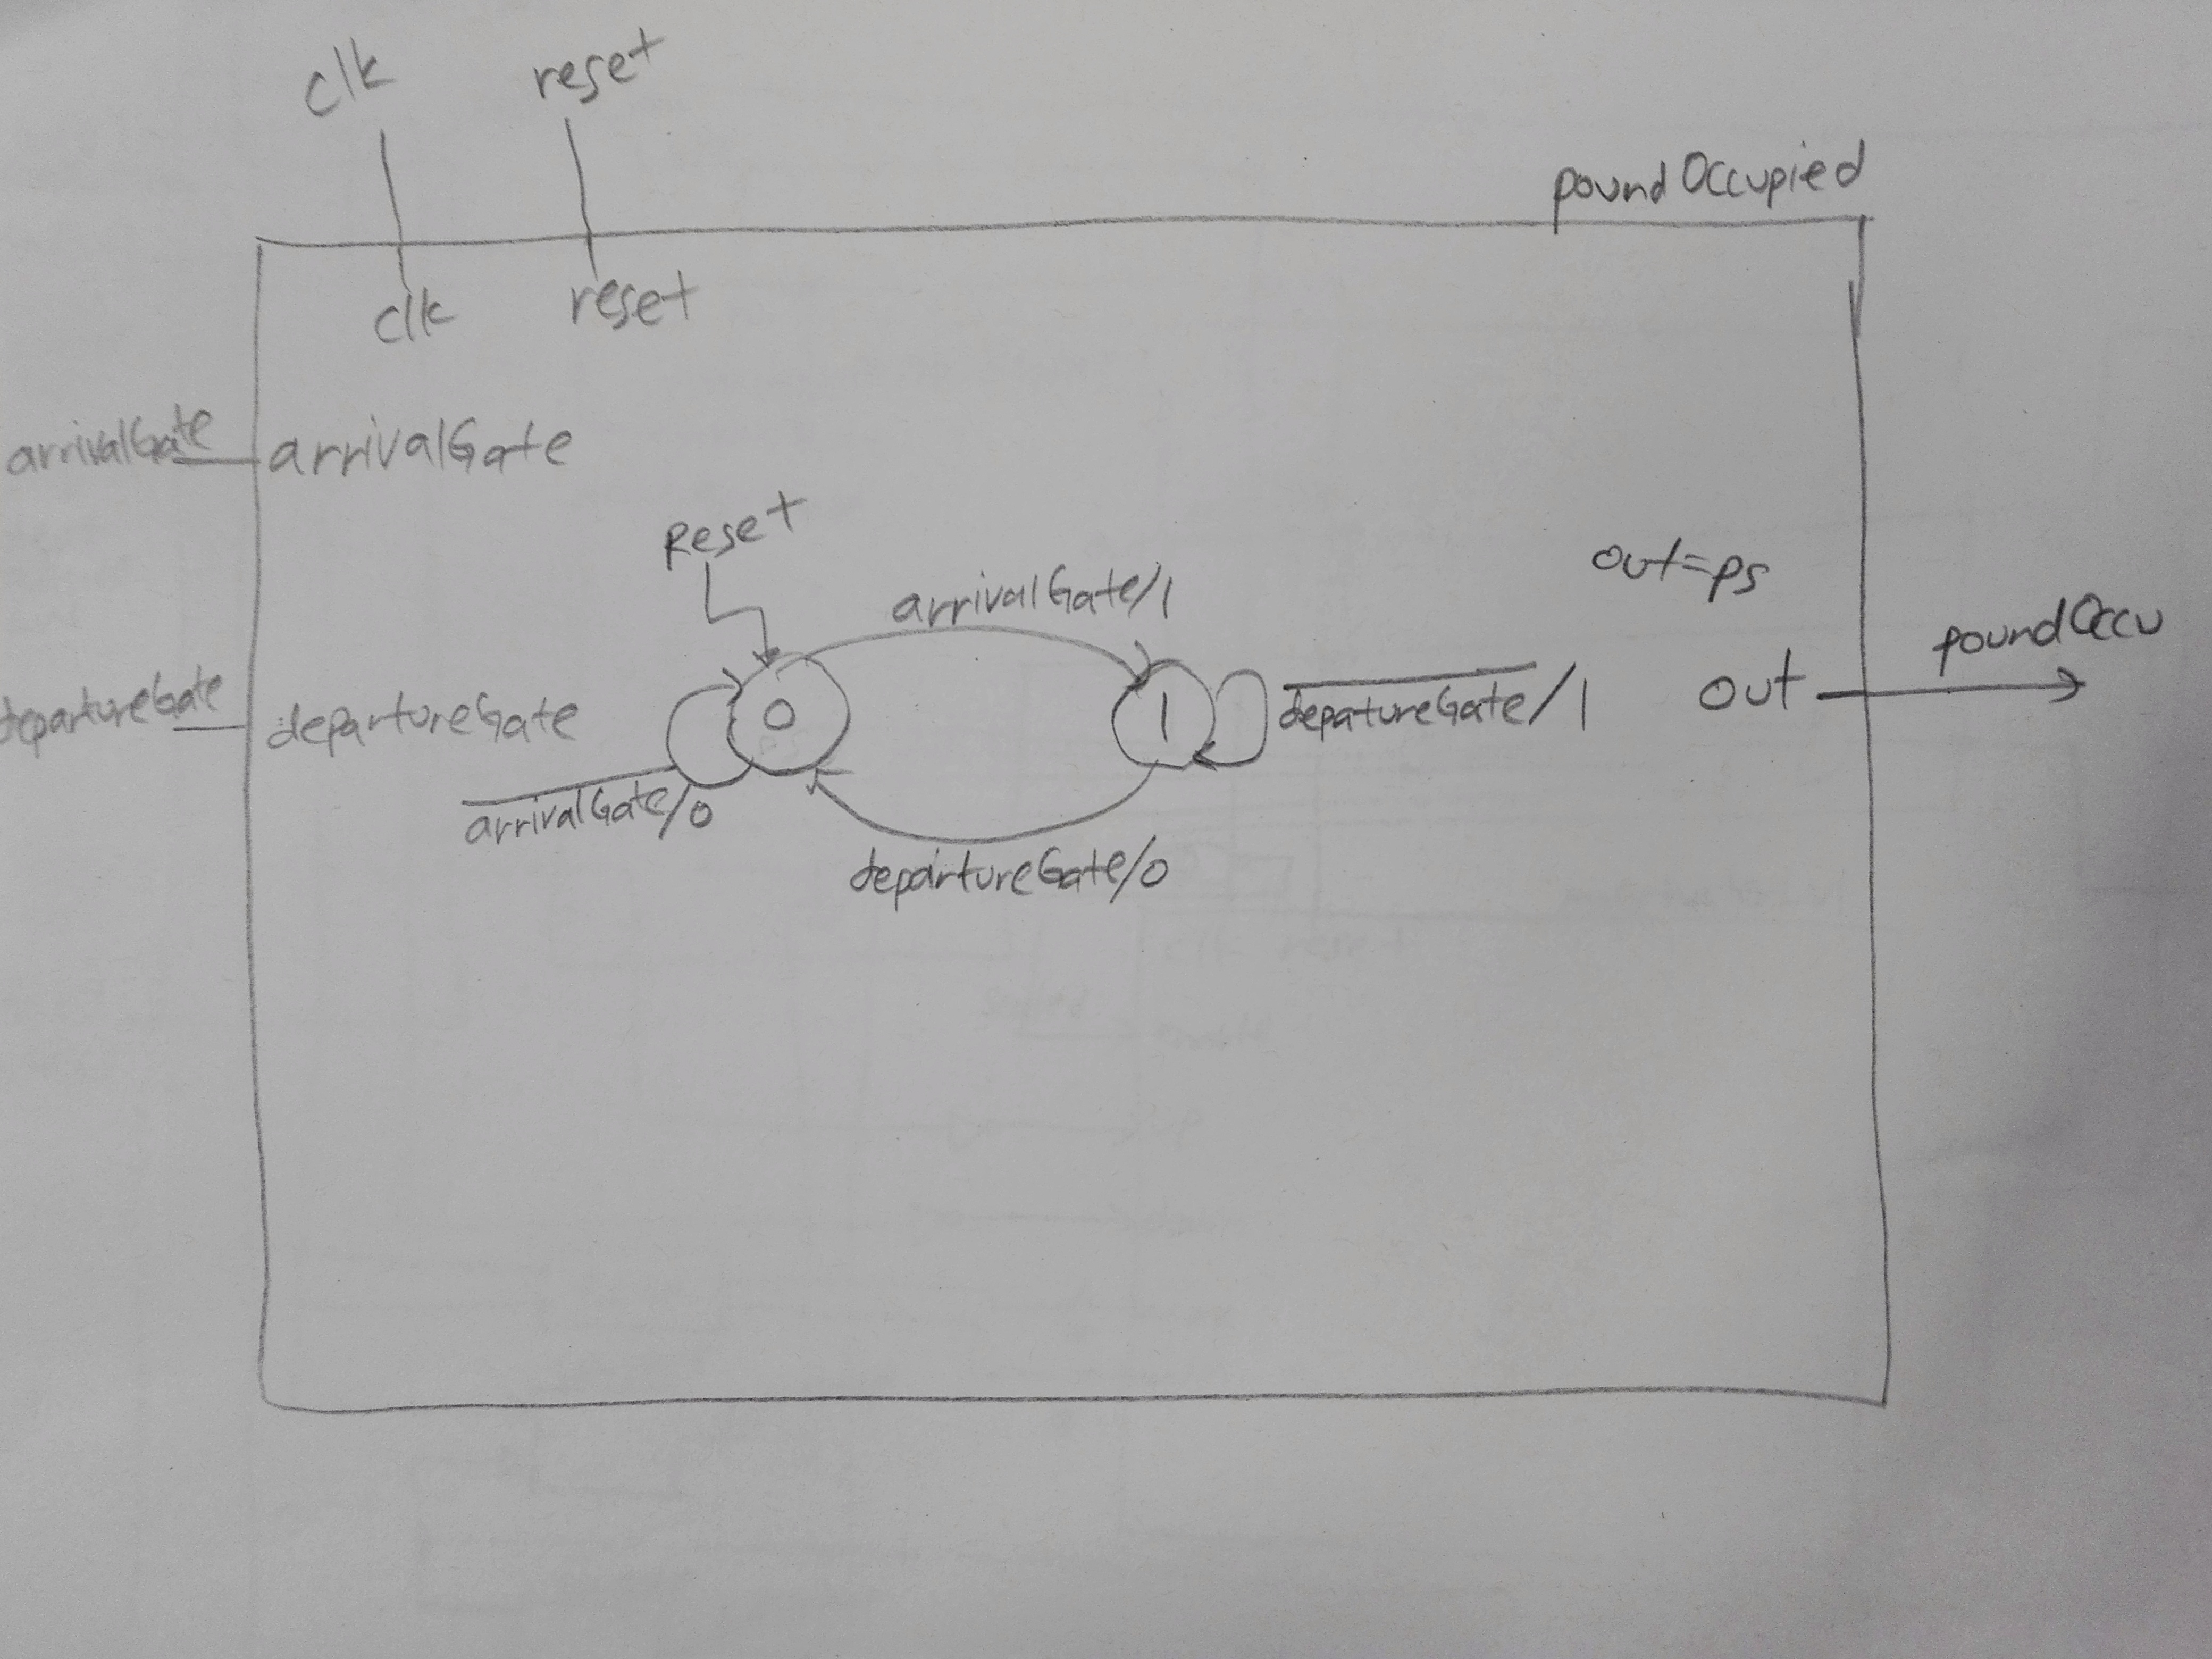 clk
reset
poundOccupied
clk
reset
arrivalGate
arrivalGate
Reset
out=ps
arrivalGate/1
poundOccu
departureGate
departureGate
0
1
depatureGate/1
out
arrivalGate/0
departureGate/0